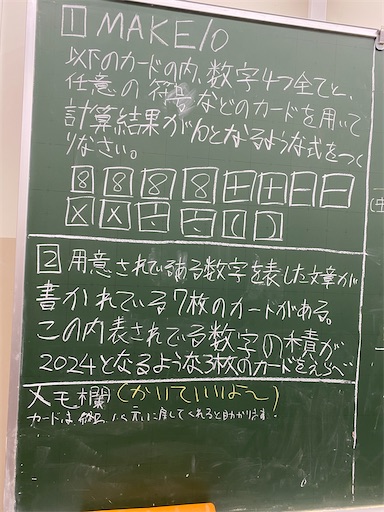 1 MAKE10
以下のカードの内、数字4つ全てと、
任意の符号などのカードを用いて
計算結果が10となるような式をつく
りなさい。
8 8 8 8 + + − −
× × ÷ ÷ ( )
2 用意されているある数字を表した文章が
書かれている7枚のカードがある。
この内表されている数字の積が
2024となるような3枚のカードをえらべ
メモ欄(かいていいよ〜)
カードは 元に戻してくれると助かります!